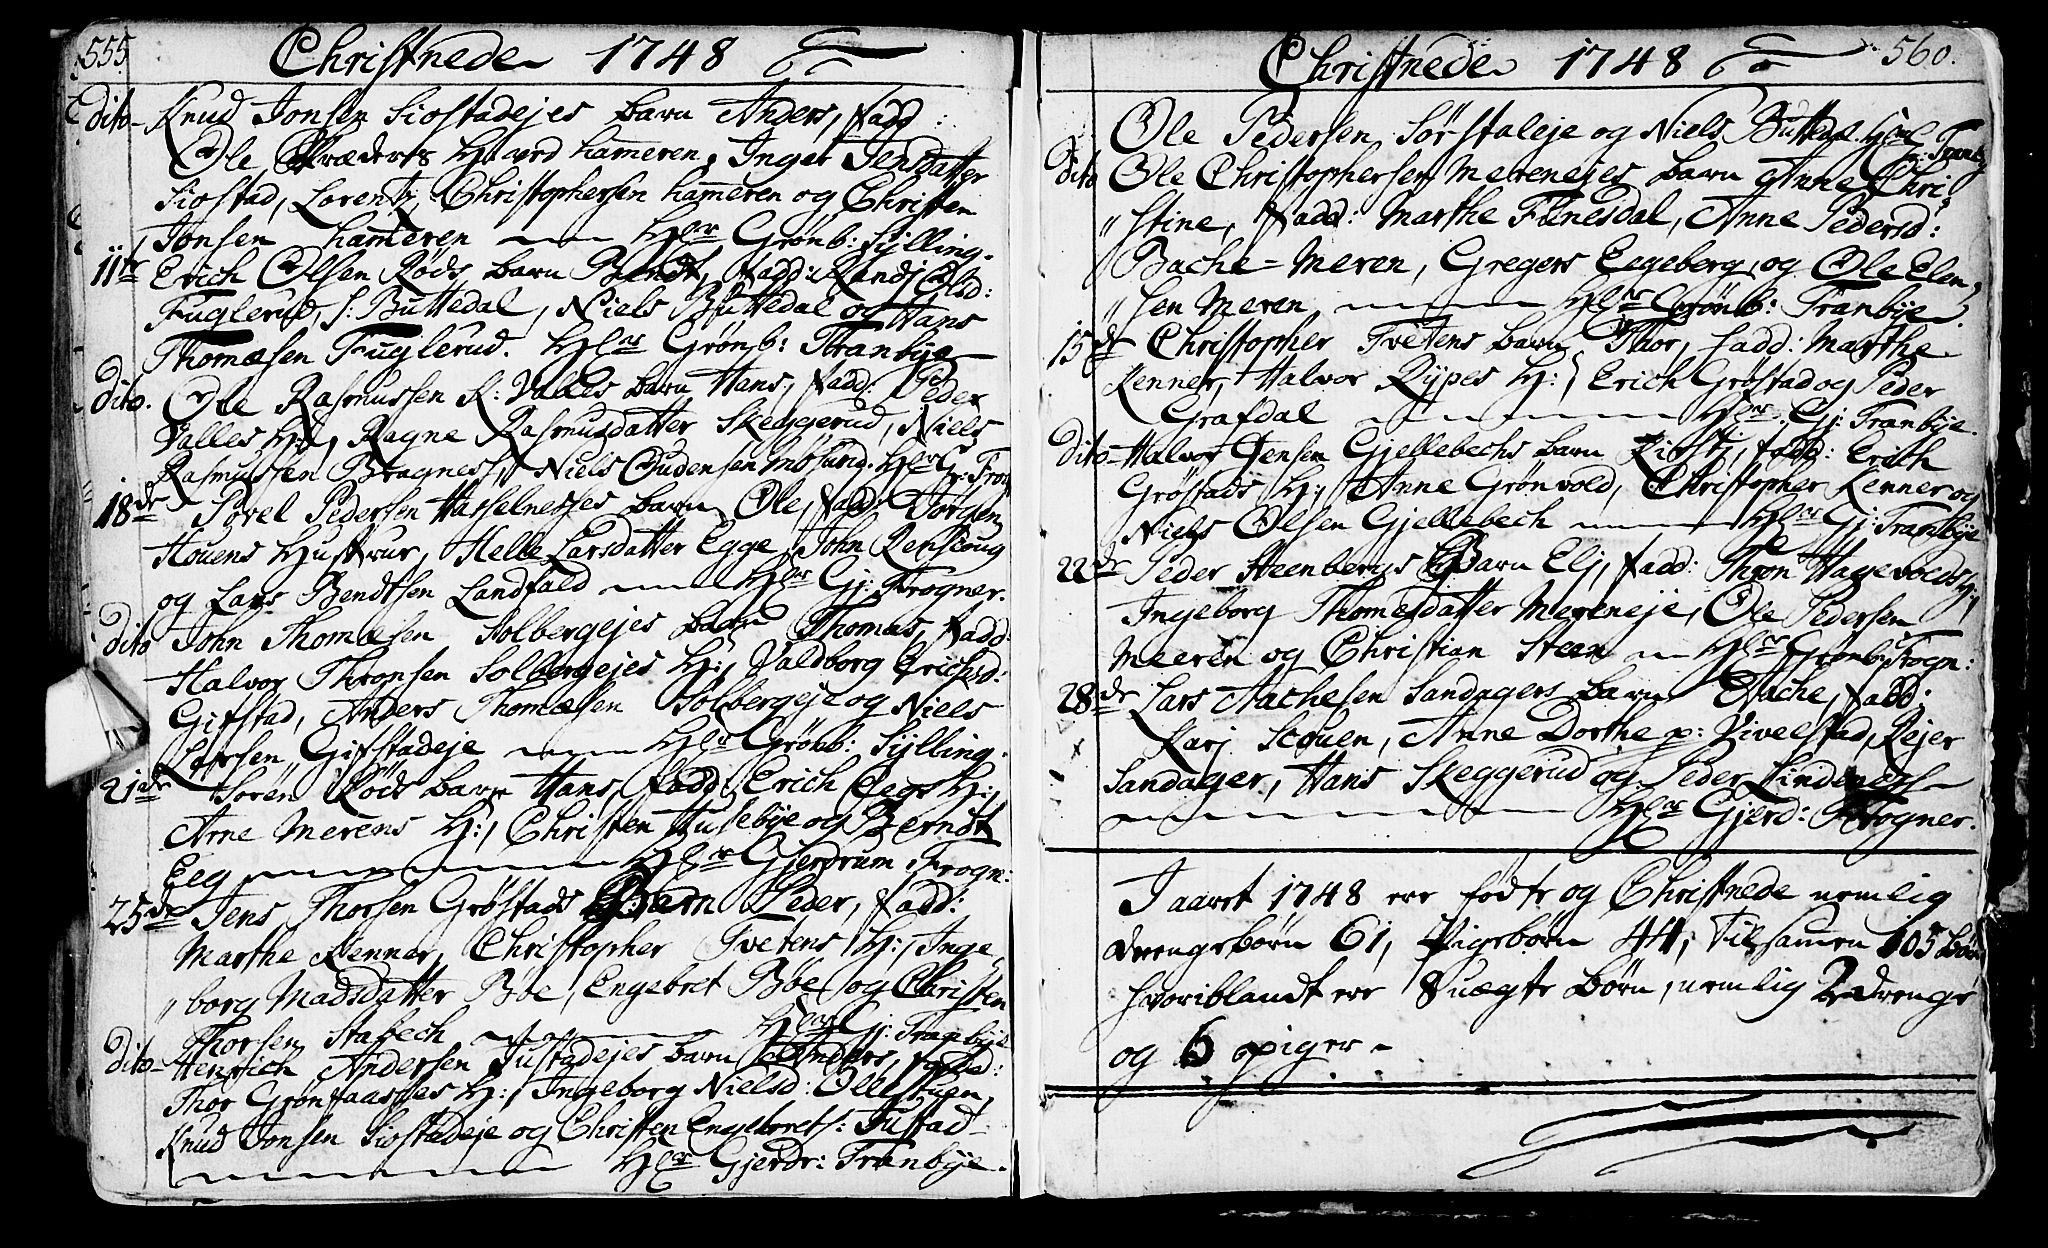 555.
Christnede 1748
dito- Knud Jonsen Siostadejes barn Anders, fadd:
Ole hammeren, Inger Jensdatter
Siostad, Lorentz Christophersen hammeren og Christen
Jonsen hammeren Hr Grönb: Sylling.
11te Erich Olsen Röds barn Bendt, fadd: Randj Olsd:
Fuglerud, Buttedal, Niels Buttedal og Hans
Thomæsen Fuglerud. Hr Grönb: Tranbÿe
dito. Ole Rasmussen Valles barn Hans, fadd: Peder
Valles H:, Ragne Rasmusdatter Skeggerud, Niels
Rasmussen Bragness, Niels Gudensen
18de Pedersen Hasselnesses barn Ole, fadd: Torgen
Houens Hustrue, Helle Larsdatter Egge, John Renscoug
og Lars Bendtsen Landfald Hr Gj: Frogner.
dito John Thomæsen Solbergejes barn Thomas, fadd:
Halvor Thronsen Solbergejes H:, Valdborg Erichsd:
Gifstad, Anders Thomæsen Solbergeje og Niels
Larsen, Gifstadeje Hr Grönb: Sylling.
21de Sören Röds barn Hans, fadd: Erich Eegs H:,
Arne Merens H:, Christen Husebÿe og Berndt
Eeg Hr Gjerdrum Frogn:
25de Jens Thorsen Gröstads Barn Peder, fadd:
Marthe Renner, Christopher Tvetens H:, Inge-
„borg Madsdatter Böe, Engebret Böe og Christen
Thorsen Stabech Hr Gj: Tranbÿe
dito- Henrich Andersen Justadejes barn Anders, fadd:
Thor Grönsaasses H:, Ingeborg Nielsd:
Knud Jonsen Siostadeje og Christen Engebrets: Justad
Hr Gjerdr: Tranbÿe.
560.
Christnede 1748
Ole Pedersen Sörstaleje og Niels Buttedal.
dito Ole Christophersen Merenejes barn Anne Chri,
„stine, fadd: Marthe Fenesdal, Anne Pedersd:
Bache-Meren, Gregers Eegeberg, og Ole Elen,
„sen Meren Hr Grönb: Tranbÿe.
15de Christopher Tvetens barn Thor, fadd: Marthe
Renner, Halvor Rÿpes H:, Erich Gröstad og Peder
Grafdal Hr Gj: Tranbÿe.
dito- Halvor Jensen Gjellebechs barn Kirstj, fadd: Erich
Gröstads H:, Anne Grönvold, Christopher Renner og
Niels Olsen Gjellebech Hr Gj: Tranbÿe
22de Peder Steenbergs Barn Elj, fadd: Thron Hagevolds H:,
Ingeborg Thomesdatter Mereneje, Ole Pedersen
Meeren og Christian Steen Hr Grönb: Frogn:
28de Lars Aachesen Sandagers barn Aache, fadd:
Karj Scouen, Anne Dorthe p: Vivelstad, Rejer
Sandager, Hans Skeggerud og Peder Lindeness
Hr Gjerd: Frogner.
I aaret 1748 ere födte og Christnede nemlig
drengebörn 61, Pigebörn 44, Tilsamen 105 börn
hvoriblandt ere 8 uægte börn, nemlig 2 drenge
og 6 piger.